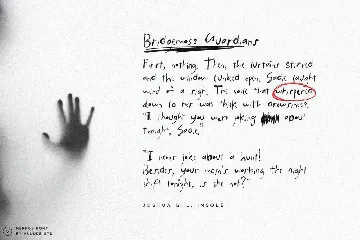 Bridgemoss Guardians
First, nothing. Then, the curtains stirred
and the window creaked open. Sadie caught
wind of a sigh. The voice that whispered
down to her was thick with drowsiness.
"I thought you were joking about
tonight, Sadie."
"I never joke about a hunt!
Besides, your mom's working the night
shift tonight, is she not?"
JOSHUA G. J. INSOLE